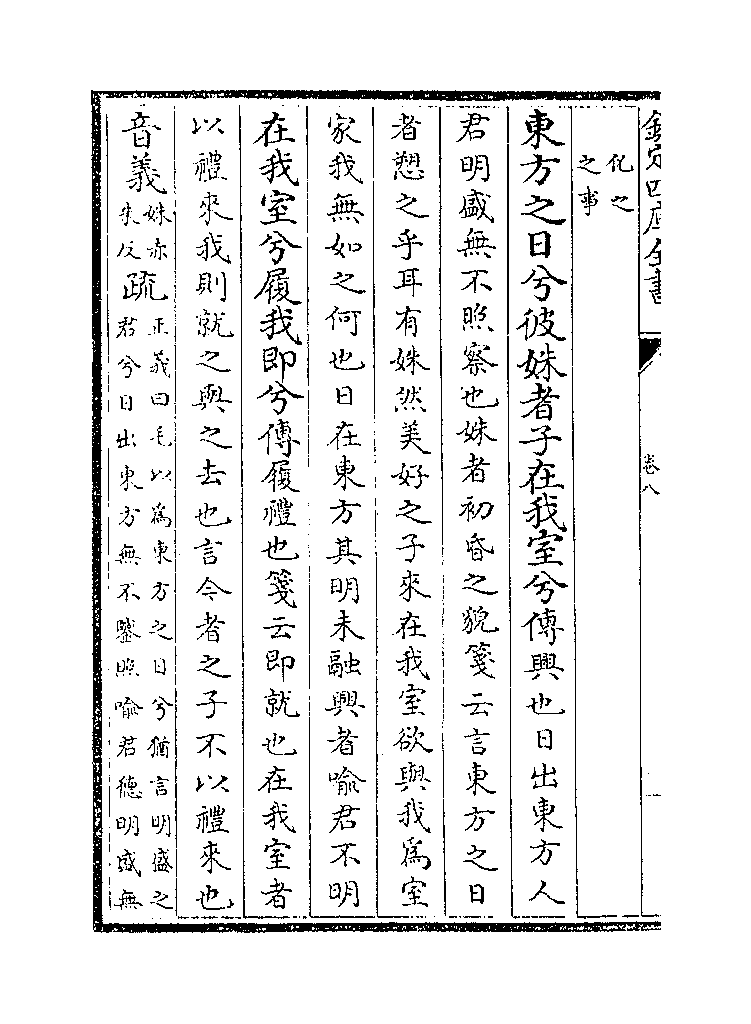 欽定四庫全書
卷八
化之
之事
東方之日兮彼姝者子在我室兮傳興也日出東方人
君明盛無不照察也姝者初昏之貌箋云言東方之日
者愬之乎耳有姝然美好之子來在我室欲與我為室
家我無如之何也日在東方其明未融興者喻君不明
在我室兮履我即兮傳履禮也箋云即就也在我室者
以禮來我則就之與之去也言今者之子不以禮來也
音義姝赤
朱反
疏正義曰毛以為東方之日兮猶言明盛之
君兮日出東方無不鑒照喻君德明盛無